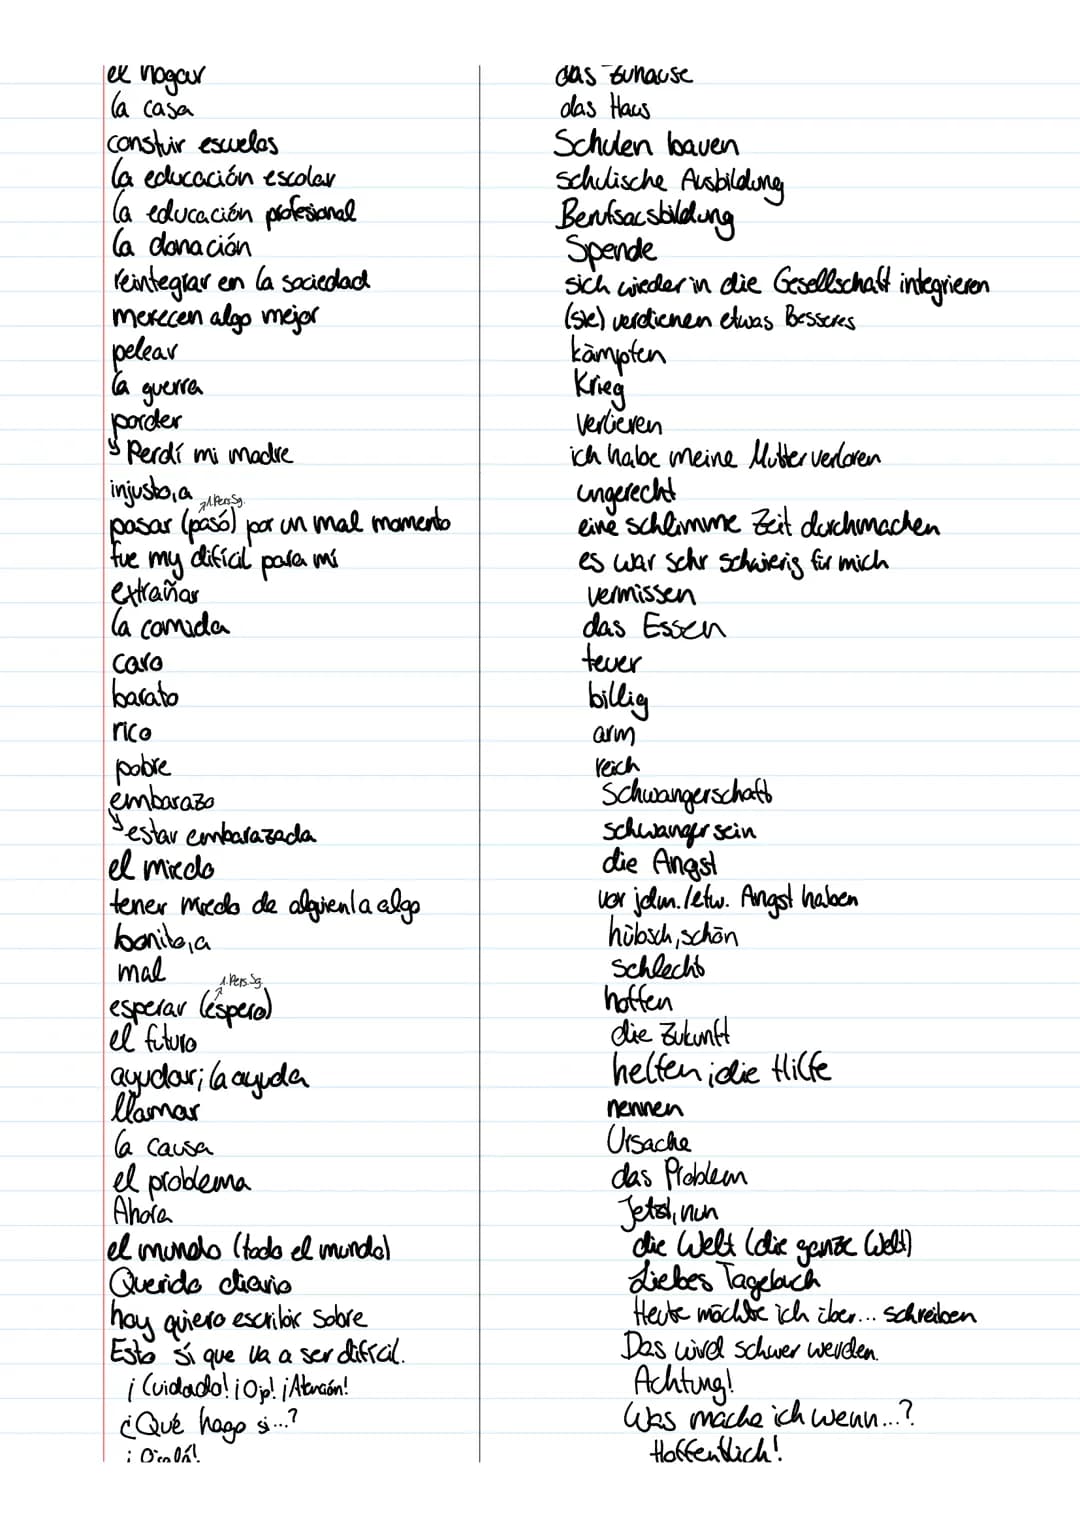 el hogar das Zuhause
la casa das Haus
constuir escuelas Schulen bauen
la educación escolar schulische Ausbildung
la educación profesional Berufsausbildung
la donación Spende
reintegrar en la sociedad sich wieder in die Gesellschaft integrieren
merecen algo mejor (sie) verdienen etwas Besseres
pelear kämpfen
la guerra Krieg
perder verlieren
↳ Perdí mi madre ich habe meine Mutter verloren
injusto,a ungerecht
↗1.Pers.Sg.
pasar (pasó) por un mal momento eine schlimme Zeit durchmachen
fue my difícil para mí es war sehr schwierig für mich
extrañar vermissen
la comida das Essen
caro teuer
barato billig
rico arm
pobre reich
embarazo Schwangerschaft
↳ estar embarazada schwanger sein
el miedo die Angst
tener miedo de alguien/a algo vor jdm./etw. Angst haben
bonito,a hübsch, schön
mal schlecht
↗1. Pers. Sg.
esperar (espero) hoffen
el futuro die Zukunft
ayudar; la ayuda helfen; die Hilfe
llamar nennen
la causa Ursache
el problema das Problem
Ahora Jetzt, nun
el mundo (todo el mundo) die Welt (die ganze Welt)
Querido diario Liebes Tagebuch
hoy quiero escribir sobre Heute möchte ich über... schreiben
Esto sí que va a ser difícil. Das wird schwer werden.
¡Cuidado! ¡Ojo! ¡Atención! Achtung!
¿Qué hago si...? Was mache ich wenn...?
¡Ojalá! Hoffentlich!